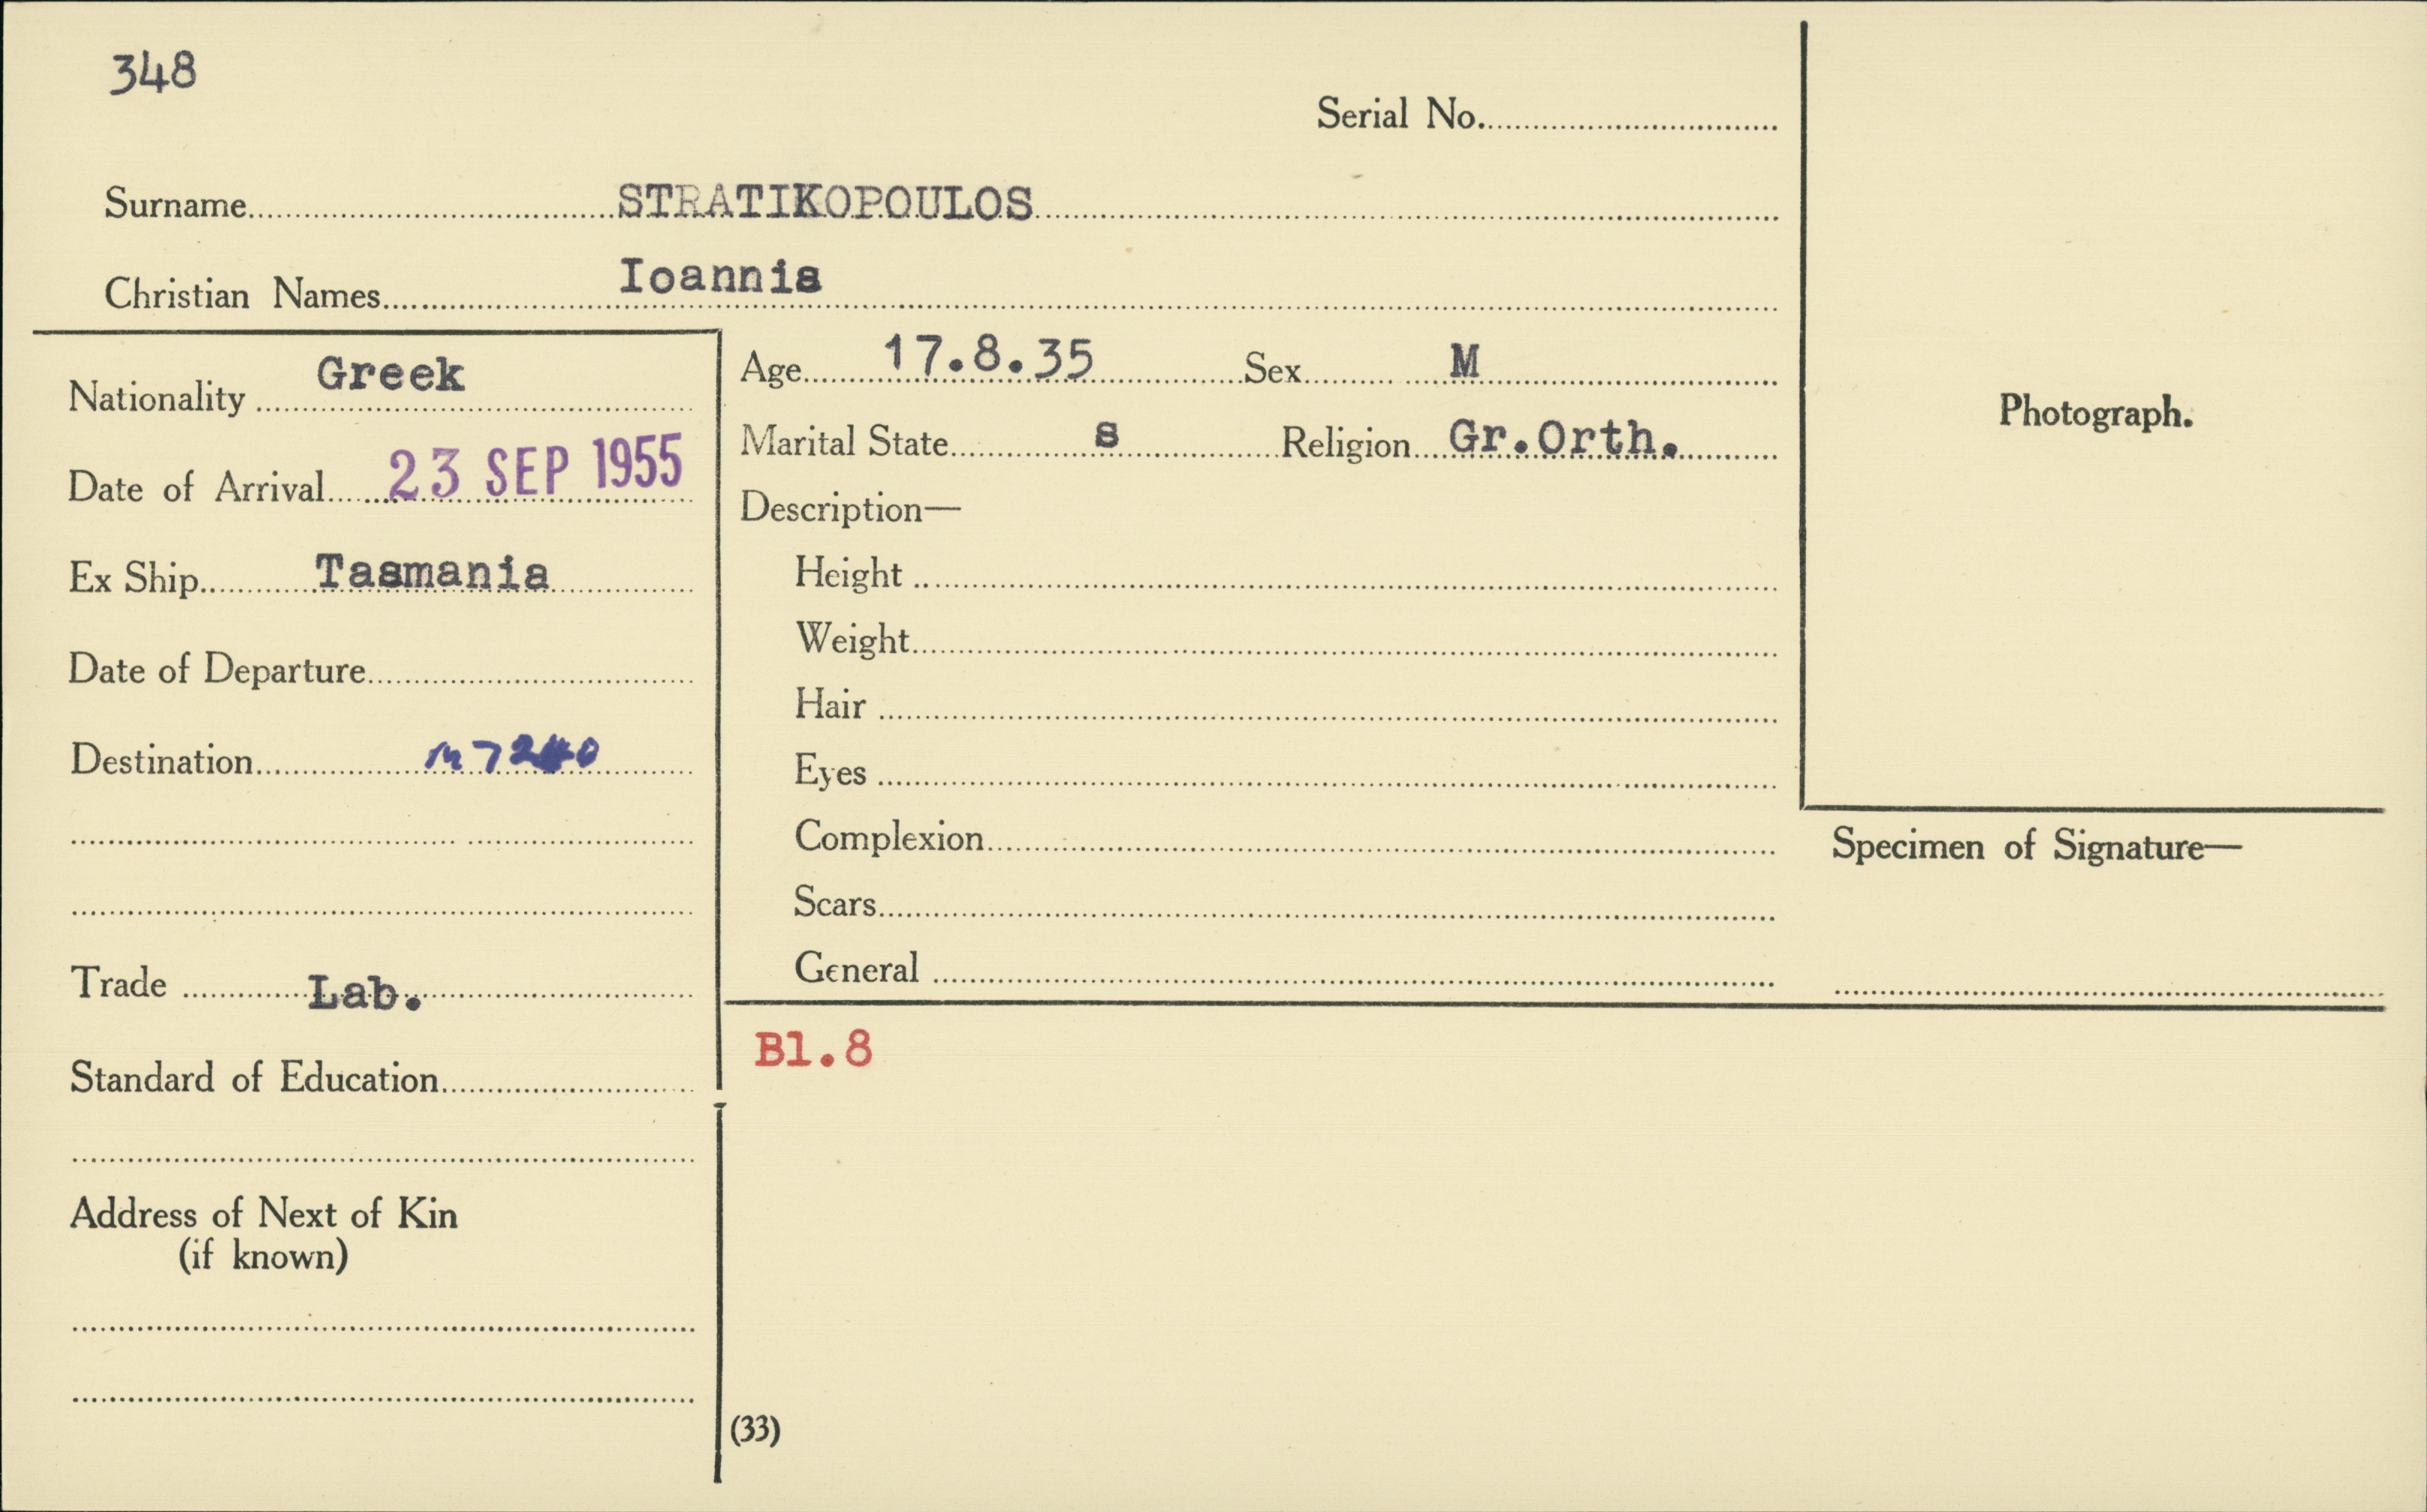 348
Serial No.
Surname STRATIKOPOULOS
Christian Names Ioannis
Nationality Greek
Date of Arrival 23 SEP 1955
Ex Ship Tasmania
Date of Departure
Destination
Trade Lab.
Standard of Education
Address of Next of Kin
(if known)
Age 17.8.35 Sex M
Marital State s Religion Gr.Orth.
Description—
Height
Weight
Hair
Eyes
Complexion
Scars
General
Bl.8
(33)
Photograph.
Specimen of Signature—